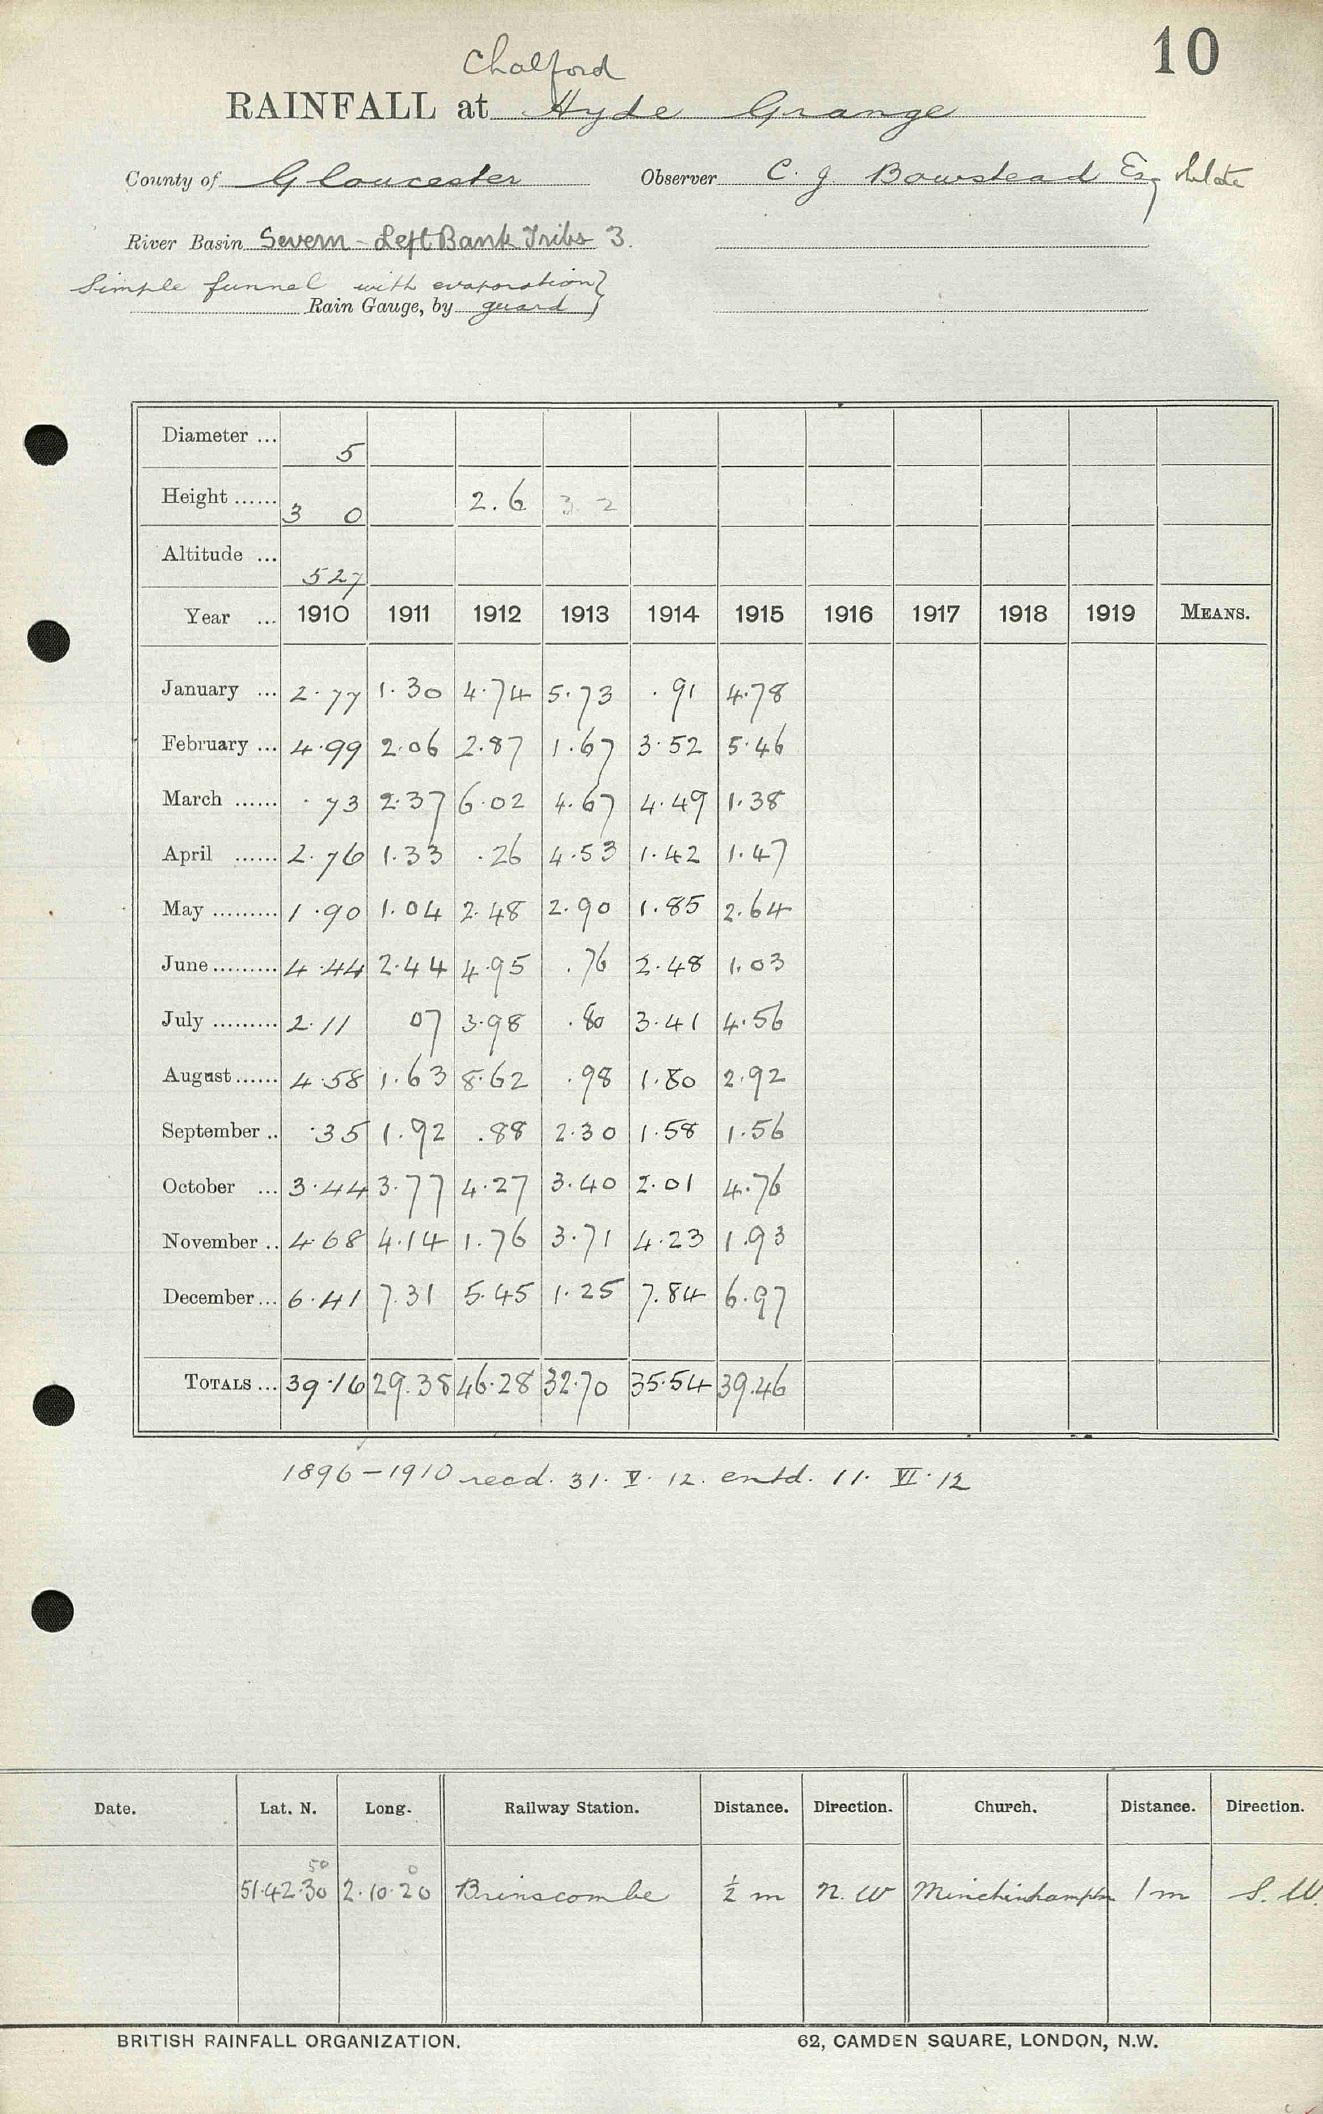 10
Chalford
RAINFALL at Hyde Grange
County of Gloucester Observer C. J. Bowstead Esq
River Basin Severn - Left Bank Tribs 3.
Simple funnel with evaporation}
Rain Gauge, by guard}
Diameter ... 5
Height ...... 3 0 2.6 3 2
Altitude ... 527
Year ... 1910 1911 1912 1913 1914 1915 1916 1917 1918 1919 MEANS.
January ... 2.77 1.30 4.74 5.73 .91 4.78
February ... 4.99 2.06 2.87 1.67 3.52 5.46
March ...... .73 2.37 6.02 4.67 4.49 1.38
April ...... 2.76 1.33 .26 4.53 1.42 1.47
May ......... 1.90 1.04 2.48 2.90 1.85 2.64
June ......... 4.44 2.44 4.95 .76 2.48 1.03
July ......... 2.11 07 3.98 .80 3.41 4.56
August ...... 4.58 1.63 8.62 .98 1.80 2.92
September .. .35 1.92 .88 2.30 1.58 1.56
October ... 3.44 3.77 4.27 3.40 2.01 4.76
November .. 4.68 4.14 1.76 3.71 4.23 1.93
December ... 6.41 7.31 5.45 1.25 7.84 6.97
TOTALS ... 39.16 29.38 46.28 32.70 35.54 39.46
1896-1910 recd. 31. V. 12. entd. 11. VI. 12
Date. Lat. N. Long. Railway Station. Distance. Direction. Church. Distance. Direction.
50 0
51.42.30 2.10.20 Brinscombe ½ m N. W Minchinhampton 1 m S. W.
BRITISH RAINFALL ORGANIZATION. 62, CAMDEN SQUARE, LONDON, N.W.